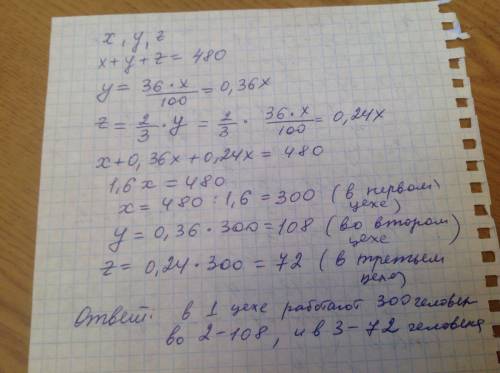 x, y, z
x+y+z=480
y = 36·x/100 = 0,36x
z = 2/3 · y = 2/3 · 36·x/100 = 0,24x
x+0,36x+0,24x = 480
1,6x = 480
x = 480 : 1,6 = 300 (в первом цехе)
y = 0,36·300 = 108 (во втором цехе)
z = 0,24·300 = 72 (в третьем цехе)
Ответ: в 1 цехе работают 300 человек
во 2-108, и в 3-72 человека